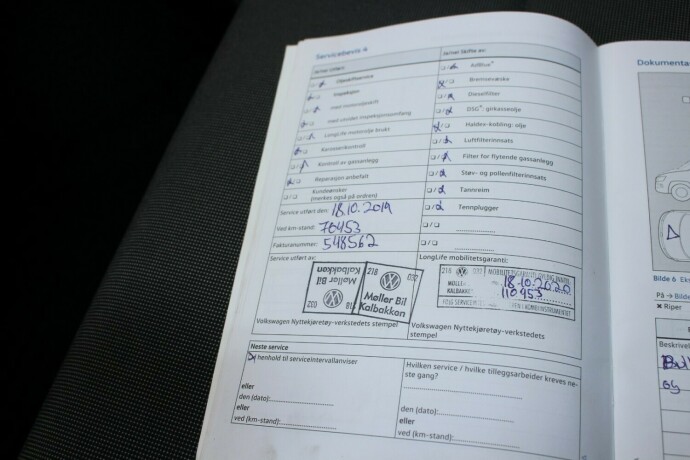 Servicebevis 4
Ja/nei Utført:
Oljeskiftservice
Inspeksjon
med motoroljeskift
med utvidet inspeksjonsomfang
LongLife motorolje brukt
Karosserikontroll
Kontroll av gassanlegg
Reparasjon anbefalt
Kundeønsker
(merkes også på ordren)
Service utført den: 18.10.2019
Ved km-stand: 76453
Fakturanummer: 548562
Ja/nei Skifte av:
AdBlue®
Bremsevæske
Dieselfilter
DSG®: girkasseolje
Haldex-kobling: olje
Luftfilterinnsats
Filter for flytende gassanlegg
Støv- og pollenfilterinnsats
Tannreim
Tennplugger
Service utført av:
Møller Bil
Kalbakken
218
032
218
032
Møller Bil
Kalbakken
Volkswagen Nyttekjøretøy-verkstedets
stempel
LongLife mobilitetsgaranti:
218
032
MØLLER
KALBAKKEN
18.10.2020
110453
Volkswagen Nyttekjøretøy-verkstedets
stempel
Neste service
I henhold til serviceintervallanviser
eller
den (dato):
eller
ved (km-stand):
Hvilken service / hvilke tilleggsarbeider kreves ne-
ste gang?
den (dato):
eller
ved (km-stand):
Dokumenta
Bilde 6 Ek
På → Bilde
× Riper
Beskrivel
og